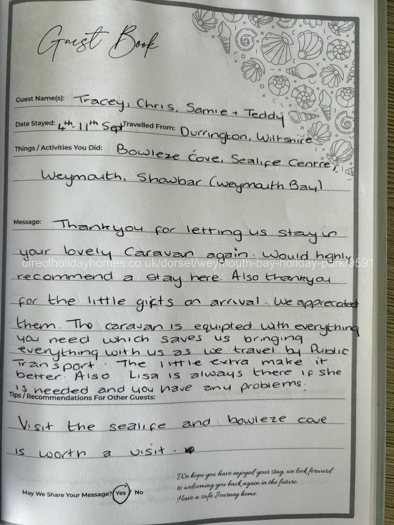 Guest Book
Guest Name(s): Tracey, Chris, Samie + Teddy
Date Stayed: 4th 11th Sept Travelled From: Durrington, Wiltshire
Things / Activities You Did: Bowleze Cove, Sealife Centre,
Weymouth, Showbar (Weymouth Bay)
Message: Thankyou for letting us stay in
your lovely Caravan again. Would highly
directholidayhomes.co.uk/dorset/weymouth-bay-holiday-park/9591
recommend a stay here. Also thankyou
for the little gifts on arrival. We appreciated
them. The caravan is equipted with everything
you need which saves us bringing
everything with us as we travel by Public
Transport. The little extra make it
better. Also Lisa is always there if she
is needed and you have any problems.
Tips / Recommendations For Other Guests:
Visit the sealife and bowleze cove
is worth a visit.
We hope you have enjoyed your stay, we look forward
to welcoming you back again in the future.
Have a safe Journey home.
May We Share Your Message? Yes / No